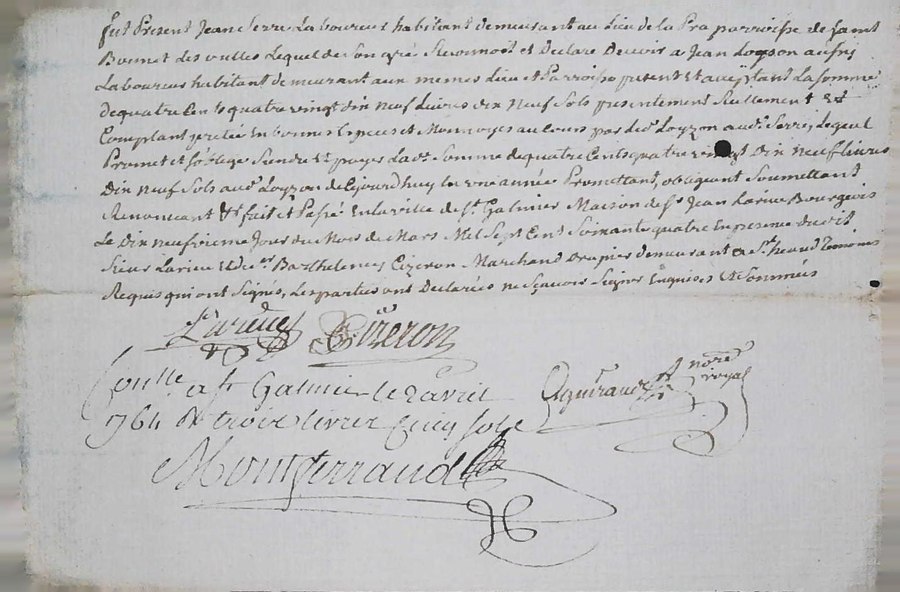 fut Present Jean Serre Laboureur habitant demeurant au Lieu de la Pra parroisse de saint
Bonnet des oulles Lequel de son gré Reconnoit et Declare Devoir a Jean Loyzon aussi
Laboureur habitant demeurant aux memes Lieu et Parroisse present et acceptant La somme
de quatre Cents quatre vingt dix neuf Livres dix neuf Sols presentement Reellement et
Comptant pretée en bonnes Especes et Monnoyes au Cours par led. Loyzon aud. Serre, Lequel
Promet et s'oblige Rendre et payer Lad. Somme de quatre Cents quatre vingt Dix neuf livres
Dix neuf Sols aud. Loyzon de Cejourd'huy En une année Promettant, obligeant Soumettant
Renonceant &t fait et Passé En la ville de St. Galmier Maison de Sr. Jean Larieu Bourgeois
Le Dix neufvieme Jour du Mois de Mars Mil Sept Cent Soixante quatre En presence dudit
Sieur Larieu et de Sr. Barthelemy Cizeron Marchand Drapier demeurant a St. heand Temoins
Requis qui ont Signés, Les parties ont Declarées ne Sçavoir Signer Enquises et Sommées
Larieu Cizeron
Conlle a St Galmier le 2 avril
1764 R trois livres Cinq sols
notre royal
Montferraud